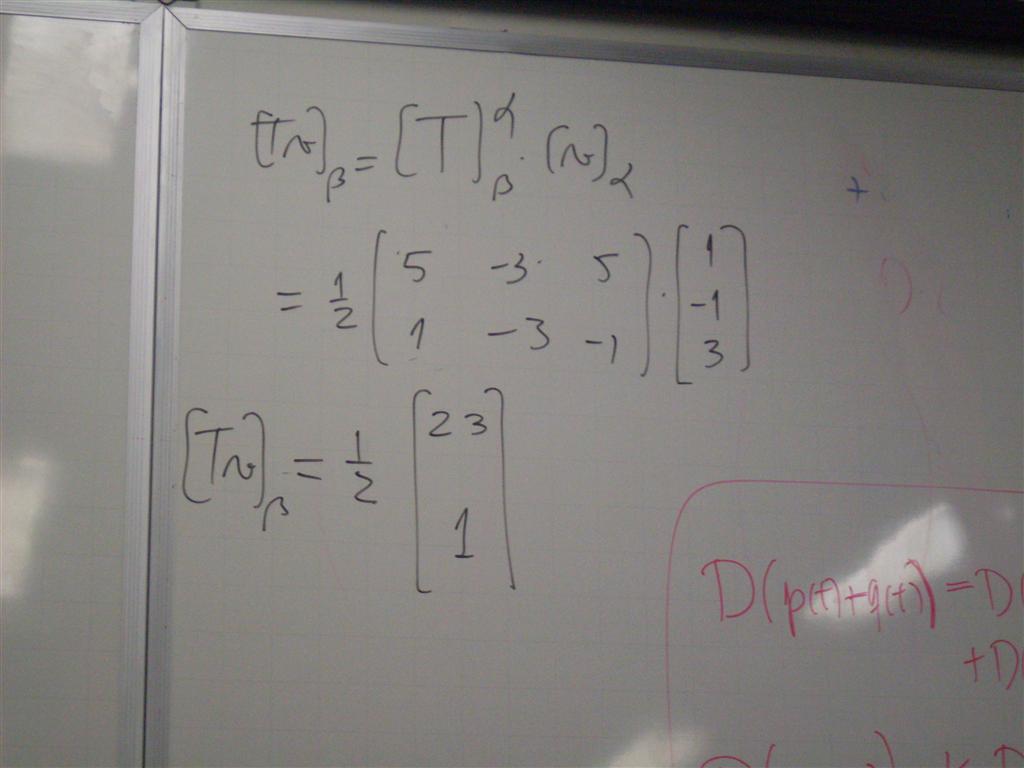 [Tv]β = [T]β^α · [v]α
= 1/2 (5 -3 5; 1 -3 -1) · [1; -1; 3]
[Tv]β = 1/2 [23; 1]
D(p(t)+q(t)) = D(
+D(